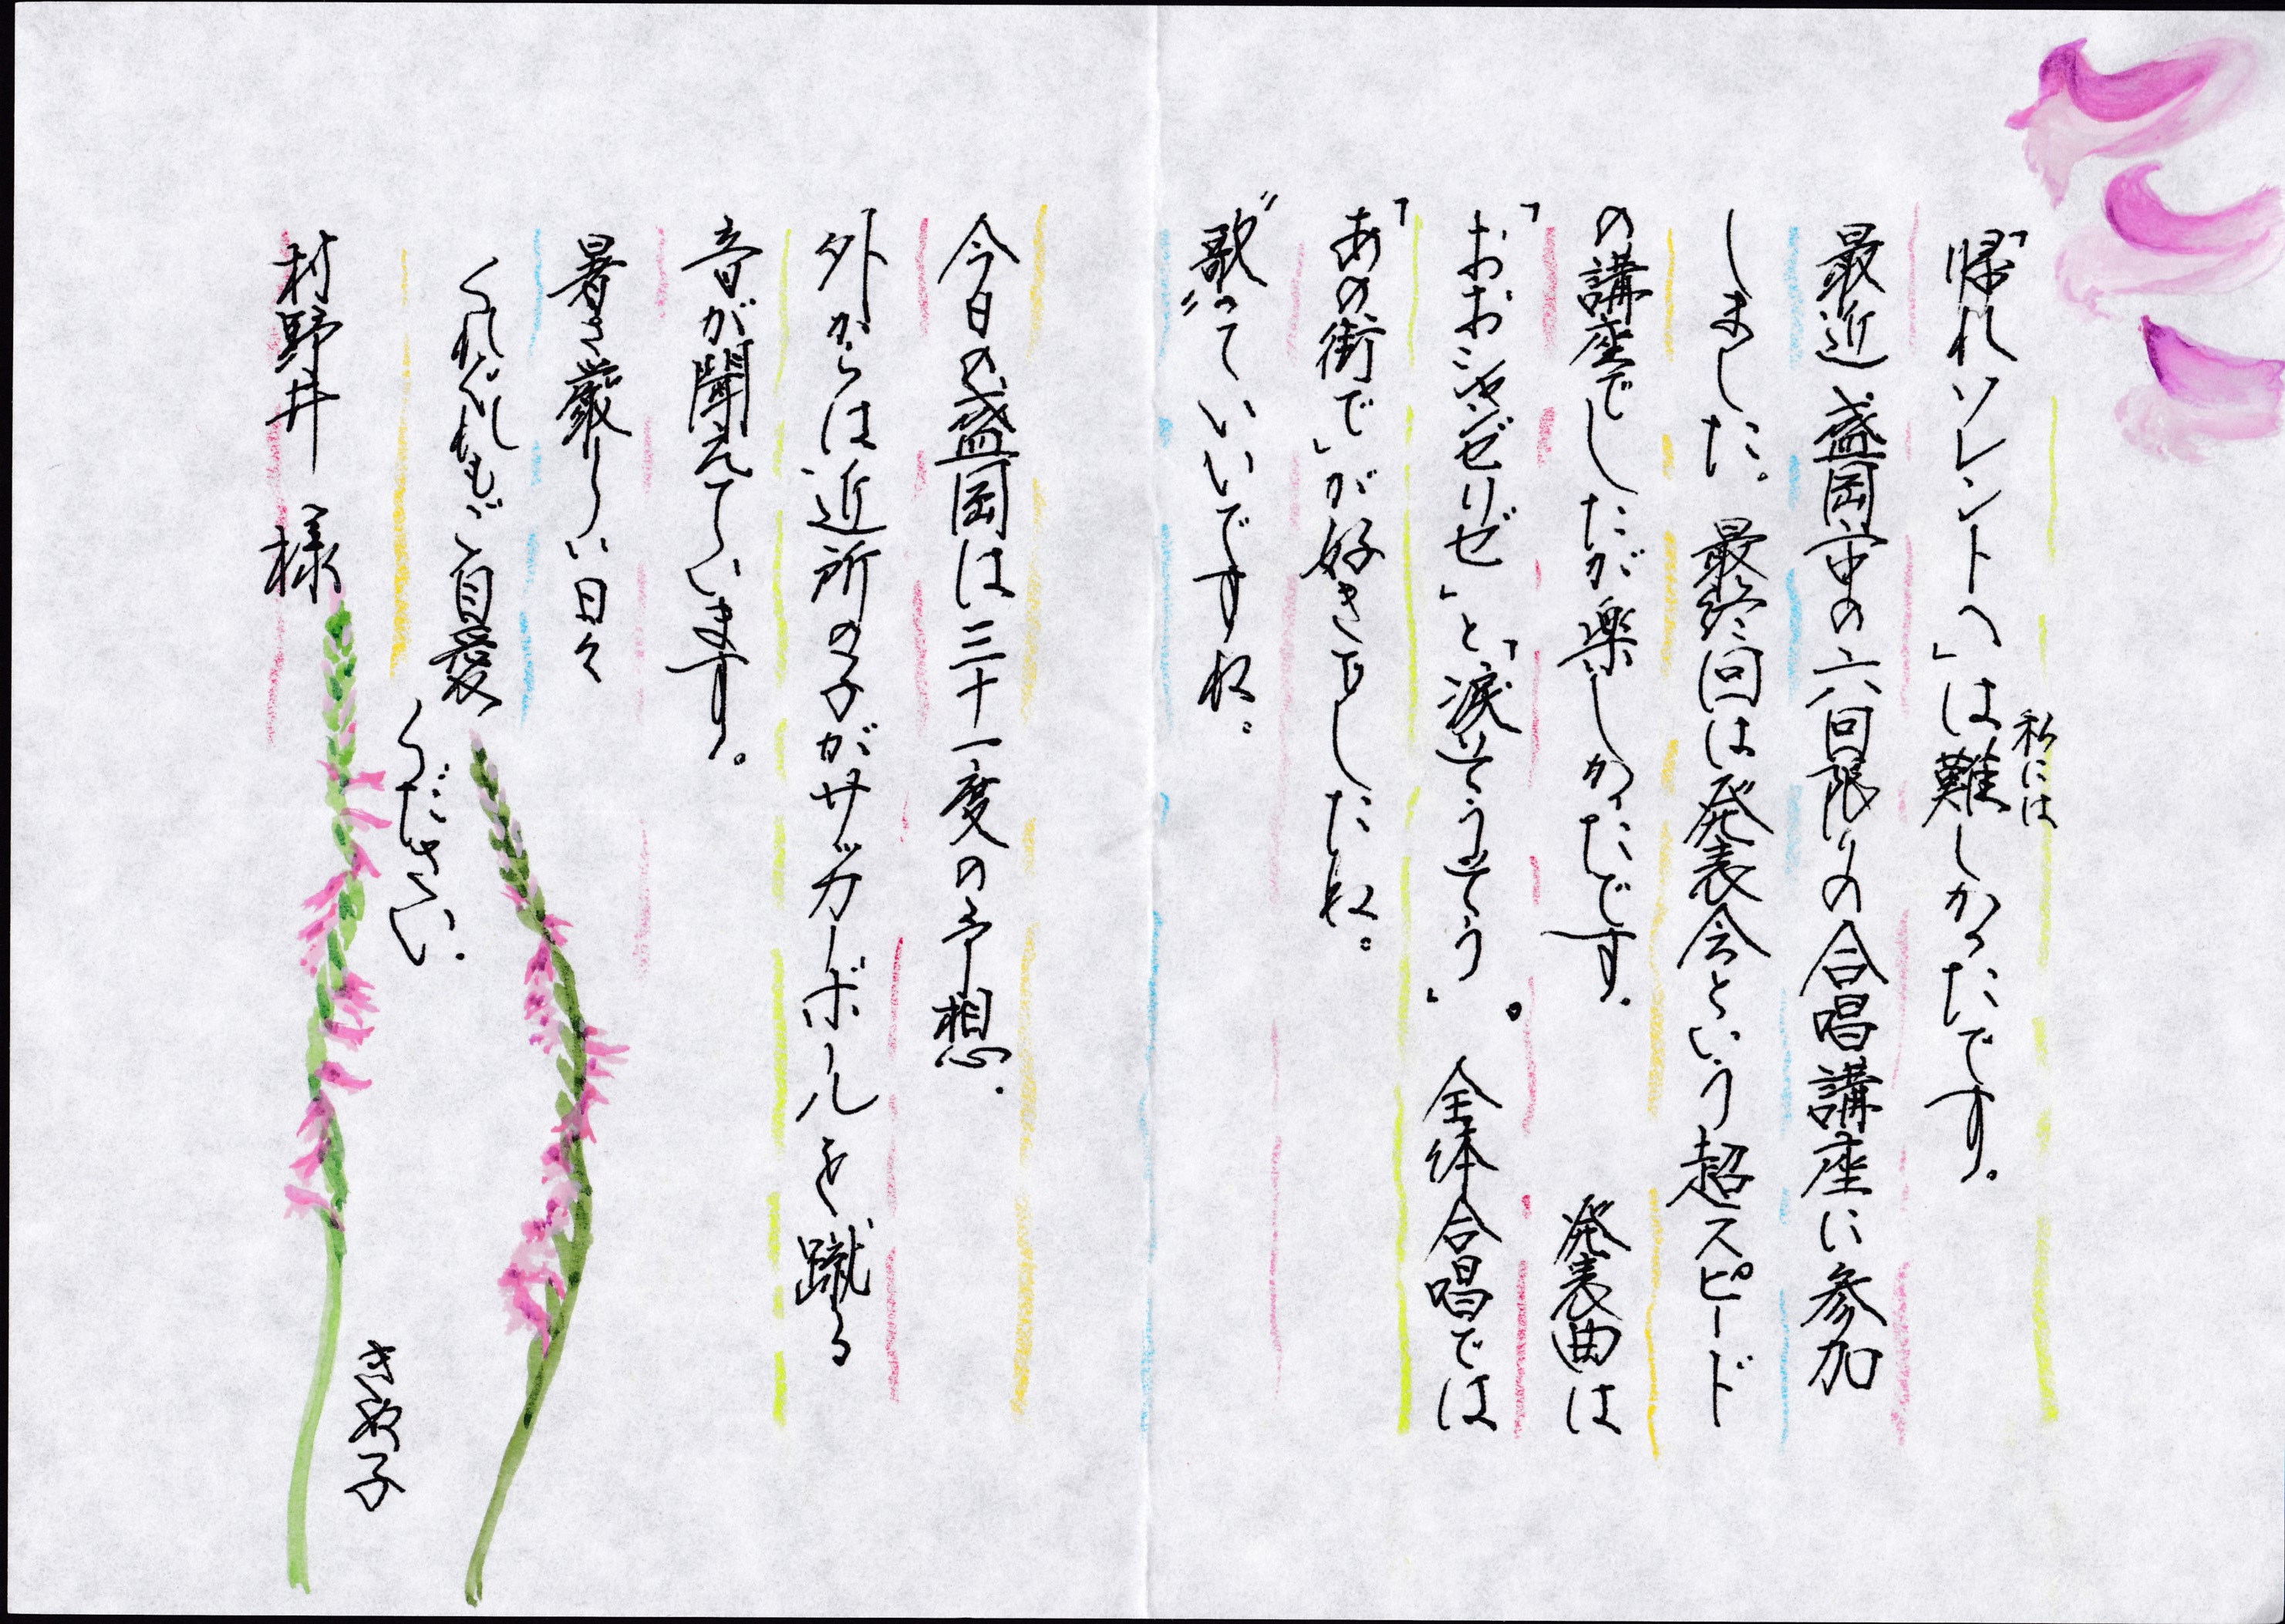 「帰れソレントへ」は私には難しかったです。
最近盛岡市の六回限りの合唱講座に参加
しました。最終回は発表会という超スピード
の講座でしたが楽しかったです。 発表曲は
「おおシャンゼリゼ」と「涙そうそう」。全体合唱では
「あの街で」が好きでしたね。
"歌"っていいですね。
今日の盛岡は三十一度の予想.
外からは近所の子がサッカーボールを蹴る
音が聞えています。
暑さ厳しい日々
くれぐれもご自愛
ください.
きぬ子
村野井 様